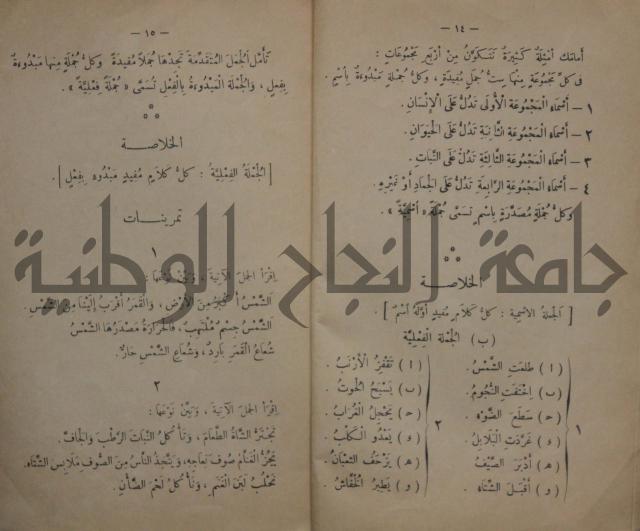 — ١٤ —
أمامك أمثلة كثيرة تتكون من أربع مجموعات :
في كل مجموعة منها ست جمل مفيدة ، وكل جملة مبدوءة باسم .
١ — أسماء المجموعة الأولى تدل على الإنسان .
٢ — أسماء المجموعة الثانية تدل على الحيوان .
٣ — أسماء المجموعة الثالثة تدل على النبات .
٤ — أسماء المجموعة الرابعة تدل على الجماد أو غيره .
وكل جملة مصدرة باسم تسمى جملة « اسمية » .
الخلاصة
[ الجملة الاسمية : كل كلام مفيد أوله اسم ] .
(ب) الجملة الفعلية
١
(ا) طلعت الشمس .
(ب) اختفت النجوم .
(ح) سطع الضوء .
(د) غردت البلابل .
(ه) أدبر الصيف .
(و) أقبل الشتاء .
٢
(ا) تقفز الأرنب .
(ب) يسبح الحوت .
(ح) يحجل الغراب .
(د) يعدو الكلب .
(ه) يزحف الثعبان .
(و) يطير الخفاش .
— ١٥ —
تأمل الجمل المتقدمة تجدها جملا مفيدة وكل جملة منها مبدوءة
بفعل ، والجملة المبدوءة بالفعل تسمى « جملة فعلية » .
الخلاصة
[ الجملة الفعلية : كل كلام مفيد مبدوء بفعل ] .
تمرينات
١
اقرأ الجمل الآتية ، وبين نوعها :
الشمس أكبر من الأرض ، والقمر أقرب إلينا من الشمس .
الشمس جسم ملتهب ، فالحرارة مصدرها الشمس
شعاع القمر بارد ، وشعاع الشمس حار .
٢
اقرأ الجمل الآتية ، وبين نوعها :
تجتر الشاة الطعام ، وتأكل النبات الرطب والجاف .
يجز الغنام صوف نعاجه ، ويتخذ الناس من الصوف ملابس الشتاء .
نحلب لبن الغنم ، ونأكل لحم الضأن .
جامعة النجاح الوطنية